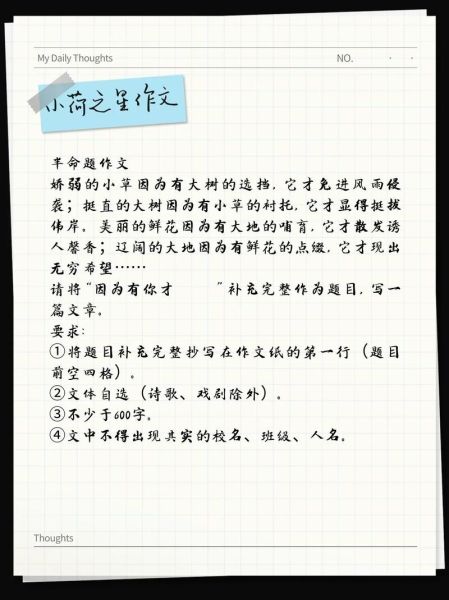 My Daily Thoughts
NO. · ·
小荷之星作文
半命题作文
娇弱的小草因为有大树的遮挡，它才免遭风雨侵
袭；挺直的大树因为有小草的衬托，它才显得挺拔
伟岸。美丽的鲜花因为有大地的哺育，它才散发诱
人馨香；辽阔的大地因为有鲜花的点缀，它才现出
无穷希望……
请将“因为有你才 ”补充完整作为题目，写一
篇文章。
要求：
①将题目补充完整抄写在作文纸的第一行（题目
前空四格）。
②文体自选（诗歌、戏剧除外）。
③不少于600字。
④文中不得出现真实的校名、班级、人名。
Thoughts